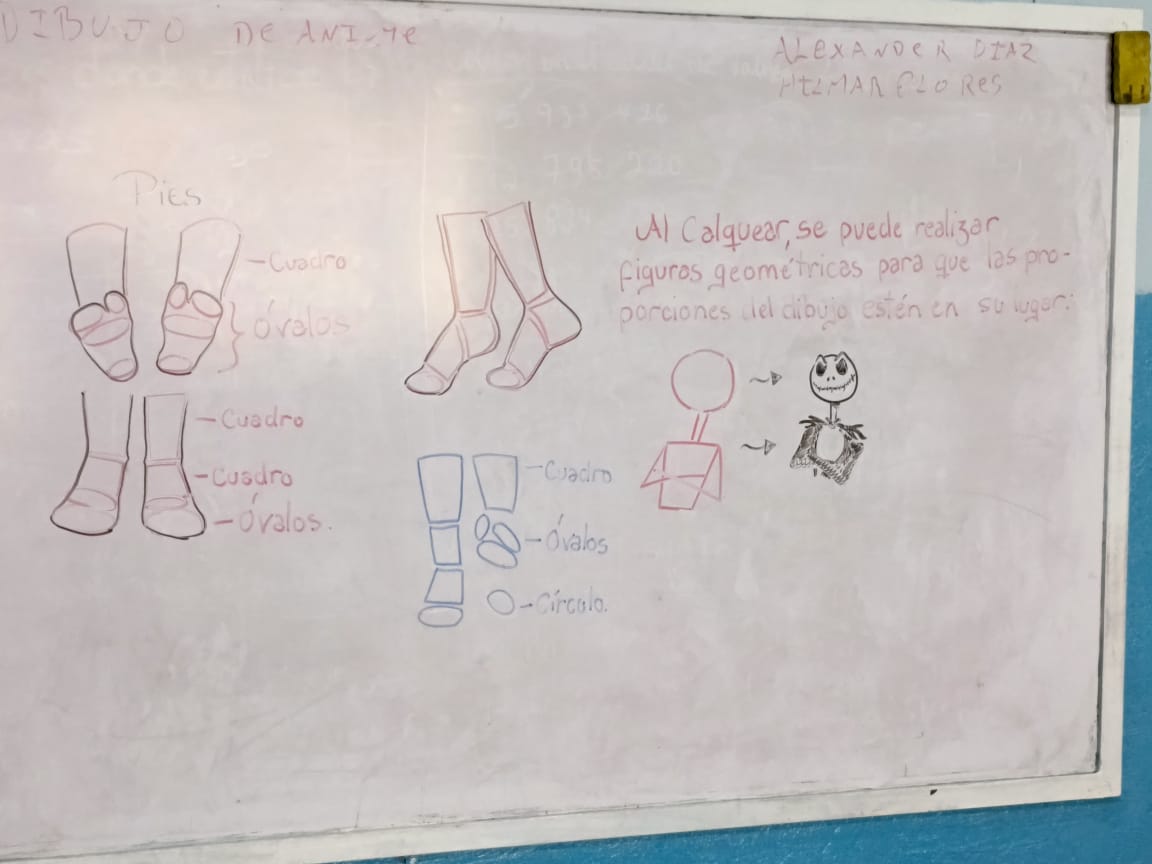 DIBUJO DE ANIME
ALEXANDER DIAZ
HILMAR FLORES
Pies
Cuadro
Óvalos
Cuadro
Cuadro
Óvalos.
Cuadro
Óvalos
Círculo.
Al Calquear, se puede realizar
figuras geométricas para que las pro-
porciones del dibujo estén en su lugar.